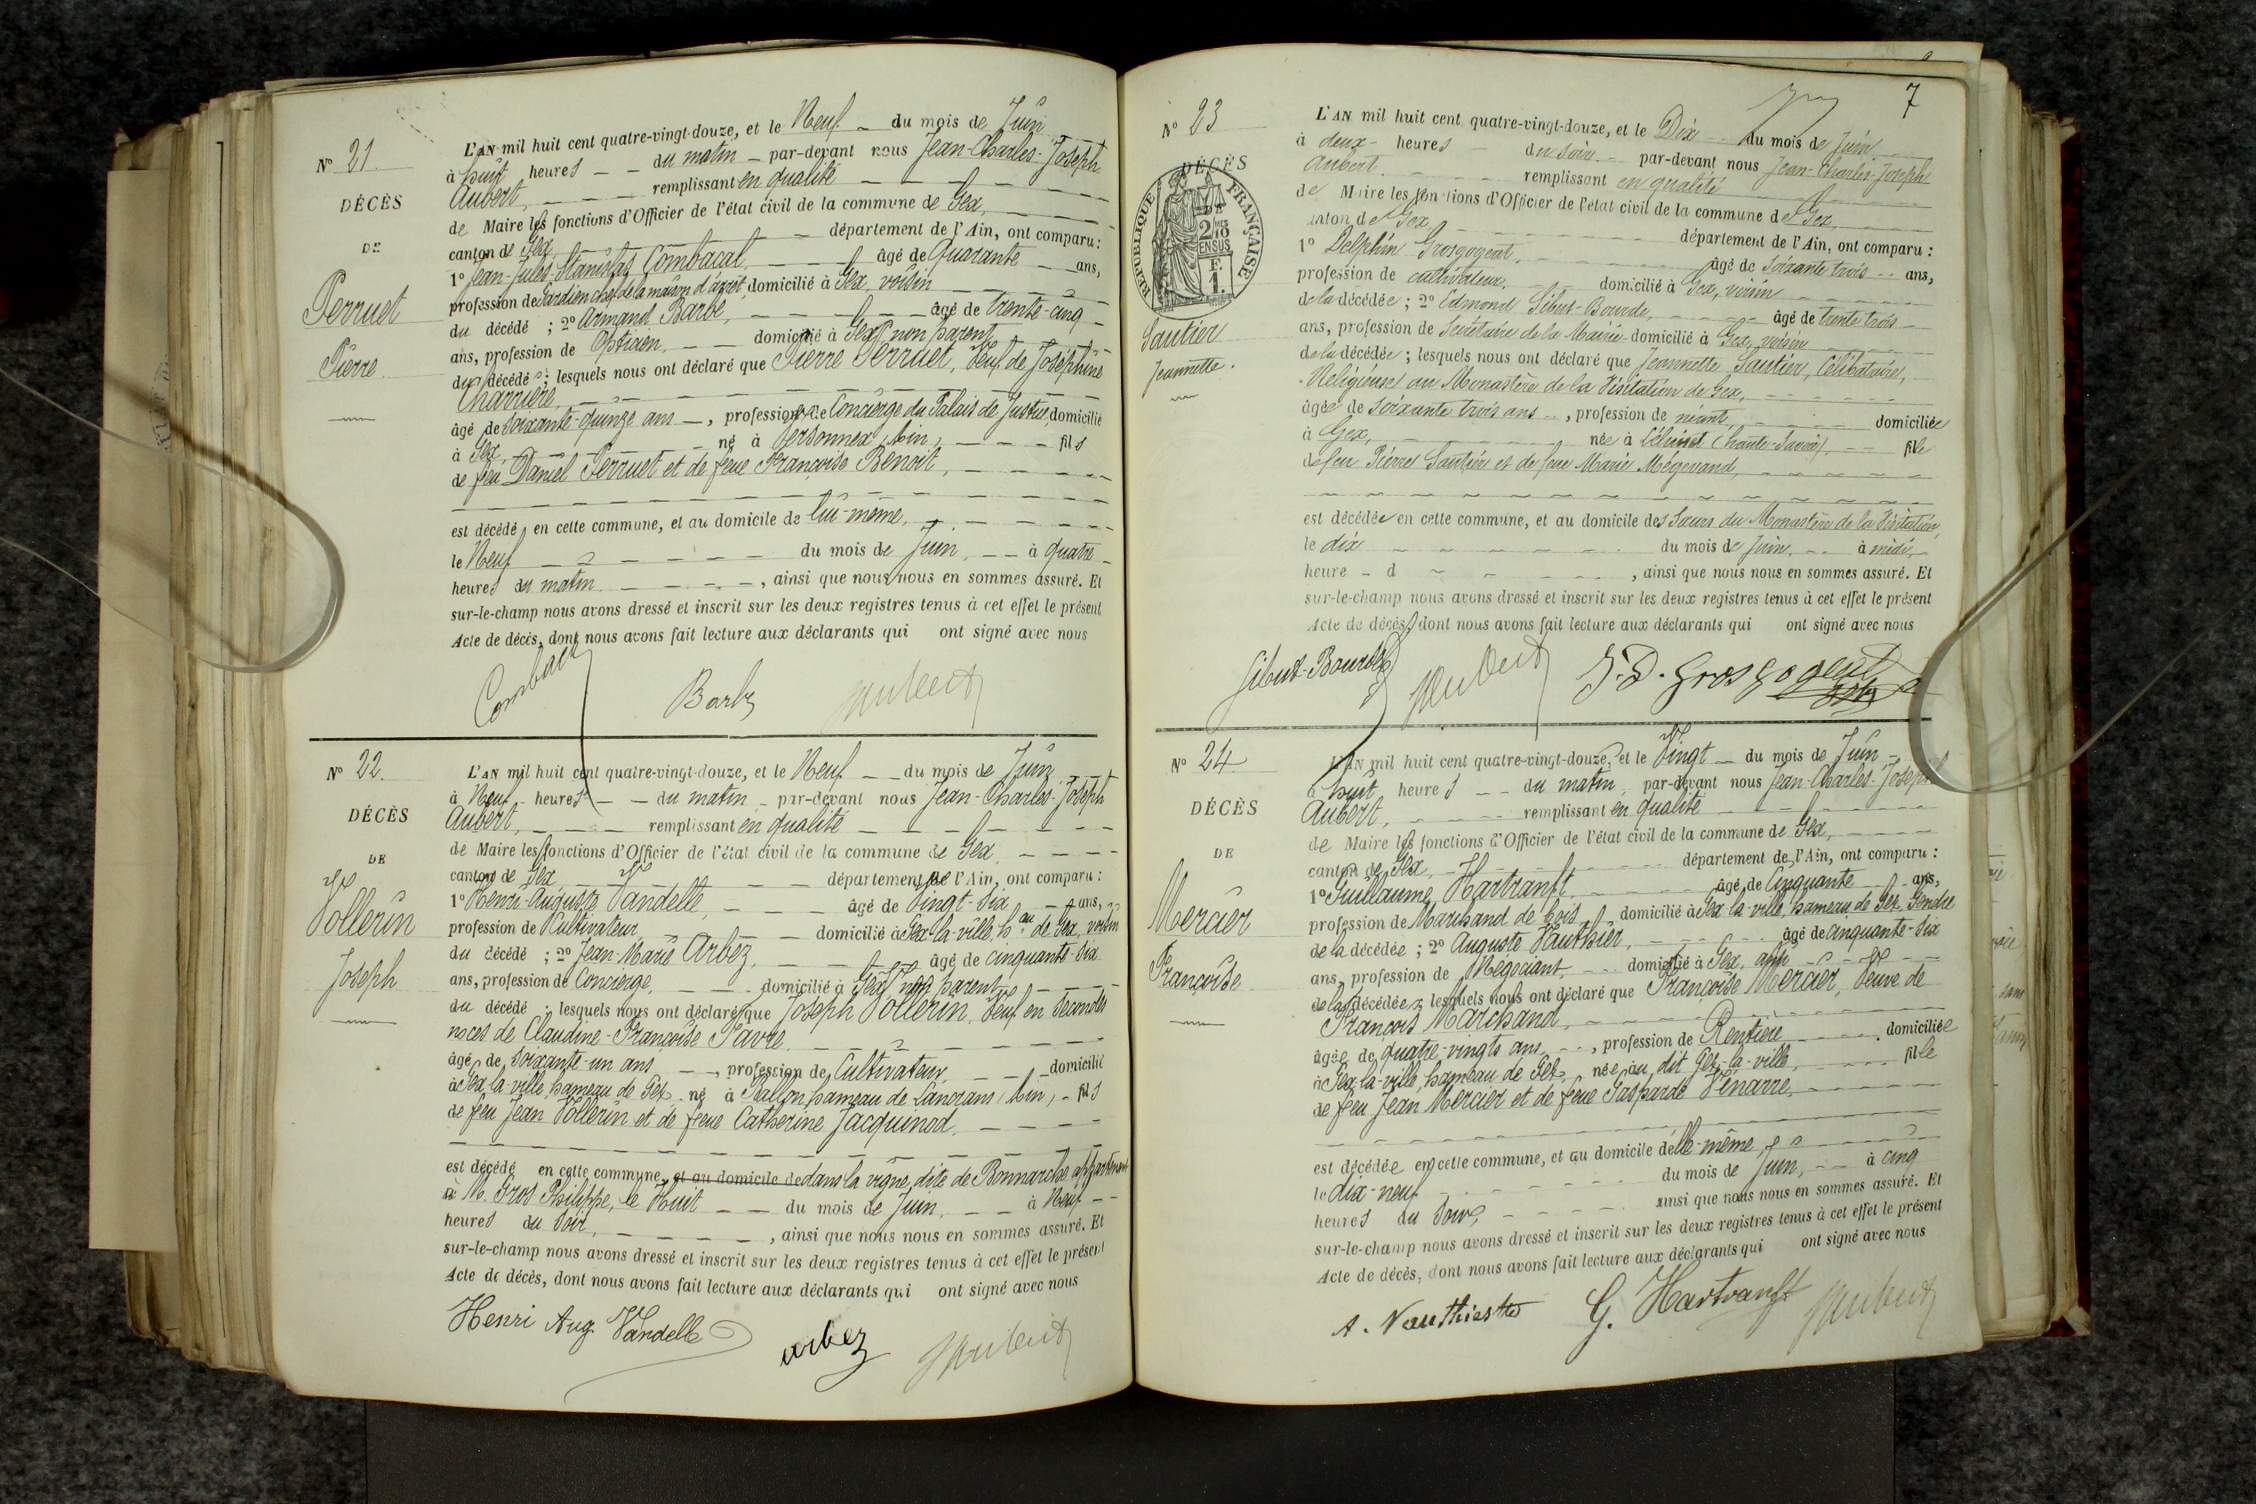 N° 21
DÉCÈS
DE
Perruet
Pierre
L'AN mil huit cent quatre-vingt-douze, et le Neuf du mois de Juin
à huit heures du matin par-devant nous Jean-Charles-Joseph
Aubert, remplissant en qualité
de Maire les fonctions d'Officier de l'état civil de la commune de Gex,
canton de Gex département de l'Ain, ont comparu :
1° Jean-Jules-Stanislas Combacal âgé de Quarante ans,
profession de Gardien chef de la maison d'arrêt, domicilié à Gex, voisin
du décédé ; 2° Armand Barbe, âgé de trente-cinq
ans, profession de Opticien, domicilié à Gex, non parent
du décédé ; lesquels nous ont déclaré que Pierre Perruet, Veuf de Joséphine
Charrière,
âgé de soixante-quinze ans, profession de Concierge du Palais de Justice, domicilié
à Gex, né à Versonnex, Ain, fils
de feu Daniel Perruet et de feue Françoise Benoit,
est décédé en cette commune, et au domicile de lui-même,
le Neuf du mois de Juin, à quatre
heures du matin, ainsi que nous nous en sommes assuré. Et
sur-le-champ nous avons dressé et inscrit sur les deux registres tenus à cet effet le présent
Acte de décès, dont nous avons fait lecture aux déclarants qui ont signé avec nous
Combacal Barbe Aubert
N° 22.
DÉCÈS
DE
Vollerin
Joseph
L'AN mil huit cent quatre-vingt-douze, et le Neuf du mois de Juin
à Neuf heures du matin par-devant nous Jean-Charles-Joseph
Aubert, remplissant en qualité
de Maire les fonctions d'Officier de l'état civil de la commune de Gex
canton de Gex département de l'Ain, ont comparu :
1° Henri-Auguste Vandelle, âgé de Vingt-six ans,
profession de Cultivateur, domicilié à Gex-la-ville, hau de Gex, voisin
du décédé ; 2° Jean-Marie Arbez, âgé de cinquante-six
ans, profession de Concierge, domicilié à Gex, non parent
du décédé ; lesquels nous ont déclaré que Joseph Vollerin, Veuf en secondes
noces de Claudine-Françoise Favre
âgé de soixante-un ans, profession de Cultivateur, domicilié
à Gex-la-ville hameau de Gex, né à Ballon hameau de Lancrans (Ain) fils
de feu Jean Vollerin et de feue Catherine Jacquinod,
est décédé en cette commune, et au domicile de dans la vigne dite de Bonnarche appartenant
à M. Gros Philippe, le Huit du mois de Juin, à Neuf
heures du soir, ainsi que nous nous en sommes assuré. Et
sur-le-champ nous avons dressé et inscrit sur les deux registres tenus à cet effet le présent
Acte de décès, dont nous avons fait lecture aux déclarants qui ont signé avec nous
Henri Aug Vandelle arbez Aubert
7
N° 23
DÉCÈS
RÉPUBLIQUE FRANÇAISE
2 10MES EN SUS
Sautier
Jeannette.
L'AN mil huit cent quatre-vingt-douze, et le Dix du mois de Juin
à deux heures du soir par-devant nous Jean-Charles-Joseph
Aubert. remplissant en qualité
de Maire les fonctions d'Officier de l'état civil de la commune de Gex,
canton de Gex département de l'Ain, ont comparu :
1° Delphin Grosgogeat, âgé de soixante trois ans,
profession de cultivateur, domicilié à Gex, voisin
de la décédée ; 2° Edmond Sibut-Bourde, âgé de trente trois
ans, profession de Secrétaire de la Mairie domicilié à Gex, voisin
de la décédée ; lesquels nous ont déclaré que Jeannette Sautier, Célibataire,
Religieuse au Monastère de la Visitation de Gex,
âgée de soixante trois ans, profession de néant, domiciliée
à Gex, née à (haute-Savoie) fille
de feu Pierre Sautier et de feue Marie Mégevand,
est décédée en cette commune, et au domicile des Sœurs du Monastère de la Visitation,
le dix du mois de Juin, à midi,
heure d , ainsi que nous nous en sommes assuré. Et
sur-le-champ nous avons dressé et inscrit sur les deux registres tenus à cet effet le présent
Acte de décès, dont nous avons fait lecture aux déclarants qui ont signé avec nous
Sibut-Bourde Aubert J. D. Grosgogeat
N° 24
DÉCÈS
DE
Mercier
Françoise
L'AN mil huit cent quatre-vingt-douze, et le Vingt du mois de Juin
à huit heures du matin, par-devant nous Jean-Charles-Joseph
Aubert, remplissant en qualité
de Maire les fonctions d'Officier de l'état civil de la commune de Gex,
canton de Gex, département de l'Ain, ont comparu :
1° Guillaume Hartranft âgé de Cinquante ans,
profession de Marchand de bois domicilié à Gex-la-ville, hameau de Gex, Gendre
de la décédée ; 2° Auguste Vauthier, âgé de cinquante-six
ans, profession de Négociant domicilié à Gex, ami
de la décédée ; lesquels nous ont déclaré que Françoise Mercier, Veuve de
François Marchand,
âgée de quatre-vingts ans, profession de Rentière, domiciliée
à Gex-la-ville, hameau de Gex, née au dit Gex-la-ville, fille
de feu Jean Mercier et de feue Gasparde Venarre,
est décédée en cette commune, et au domicile d'elle-même,
le dix-neuf du mois de Juin, à cinq
heures du soir, ainsi que nous nous en sommes assuré. Et
sur-le-champ nous avons dressé et inscrit sur les deux registres tenus à cet effet le présent
Acte de décès, dont nous avons fait lecture aux déclarants qui ont signé avec nous
A. Vauthier G. Hartranft Aubert